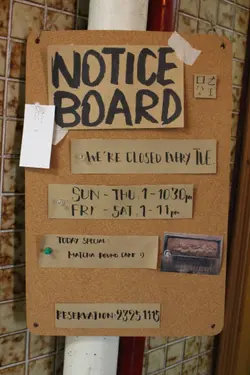 NOTICE
BOARD
WE'RE CLOSED EVERY TUE
SUN - THU. 1 - 10:30pm
FRI - SAT. 1 - 11pm
TODAY SPECIAL:
MATCHA POUND CAKE :)
RESERVATION: 2395 1115